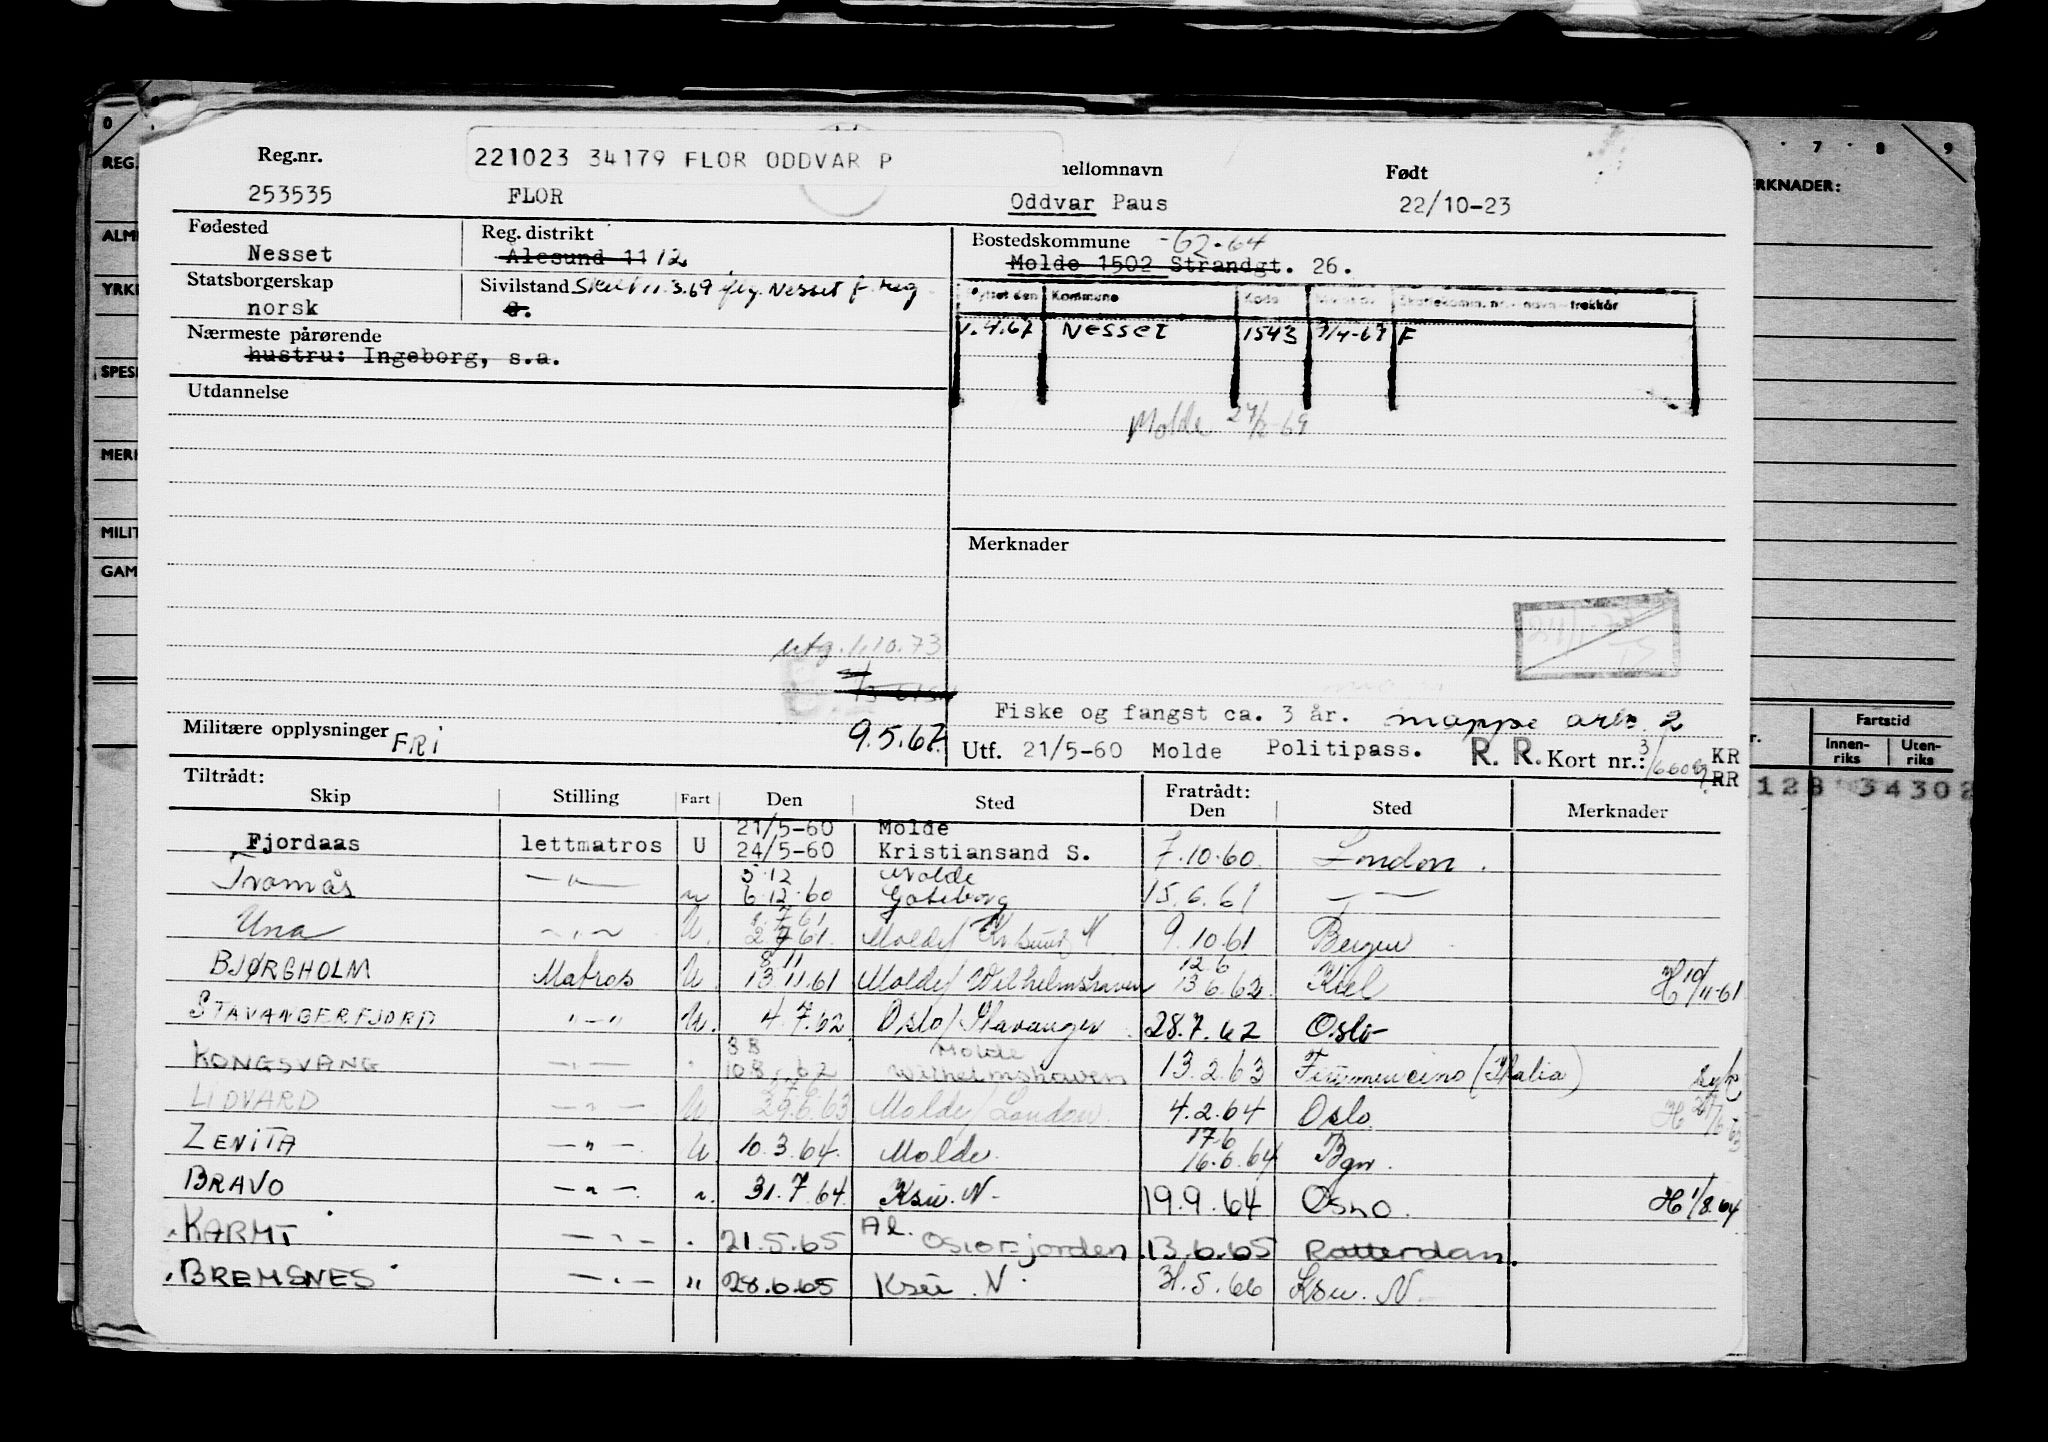 0 7 8 9
REG.
RKNADER:
Reg.nr. 221023 34179 FLOR ODDVAR P ellomnavn Født
253535 FLOR Oddvar Paus 22/10-23
Fødested Reg. distrikt Bostedskommune -62-64
Nesset Ålesund 11 12 Molde 1502 Strandgt. 26.
Statsborgerskap Sivilstand Skilt 11.3.69 flg. Nesset f. reg
norsk G.
Kommune Kode trekkår
Nærmeste pårørende 1.4.67 Nesset 1543 F
hustru: Ingeborg, s.a.
Utdannelse
Molde 69
Merknader
utg. 1.10.73
Fiske og fangst ca. 3 år. mappe 2
Militære opplysninger FRI 9.5.67 Utf. 21/5-60 Molde Politipass. R. R. Kort nr.: 3 KR
RR
Tiltrådt: Fratrådt:
Skip Stilling Fart Den Sted Den Sted Merknader
21/5-60 Molde
Fjordaas lettmatros U 24/5-60 Kristiansand S. 7.10.60 London.
5.12 Molde
Tromås —"— " 6.12.60 Göteborg 15.6.61 —"—
1.7.61
Una —"— U. 2.7.61. Molde/ Kr.sund N 9.10.61 Bergen
8.11 12.6
BJØRGHOLM Matros U. 13.11.61 Molde/ Wilhelmshaven 13.6.62. Kiel H 10/11-61
STAVANGERFJORD "—" U. 4.7.62 Oslo/Stavanger 28.7.62 Oslo
8.8 Molde
KONGSVANG —"— " 10.8.62 Wilhelmshaven 13.2.63 (Italia) syk
LIDVARD —"— U 29.6.63 Molde/London. 4.2.64 Oslo H
17.6
ZENITA —"— U 10.3.64. Molde. 16.6.64 Bgn.
BRAVO —"— ". 31.7.64. Ksu. N- 19.9.64 Oslo. H 1/8.64
KARMT —"— " 21.5.65 Al. Oslofjorden 13.6.65 Rotterdam.
BREMSNES —"— " 28.6.65 Ksu. N 31.5.66 Ksu. N
ALM
YRK
SPES
MERK
MILIT
GAM
Fartstid
Innen-riks Uten-riks
128 34302